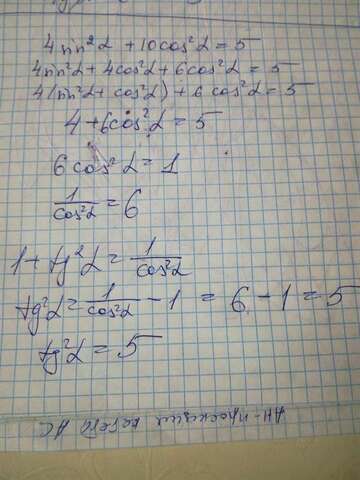 4 sin²α + 10cos²α = 5
4sin²α + 4cos²α + 6cos²α = 5
4(sin²α + cos²α) + 6cos²α = 5
4 + 6cos²α = 5
6cos²α = 1
1/cos²α = 6
1 + tg²α = 1/cos²α
tg²α = 1/cos²α - 1 = 6 - 1 = 5
tg²α = 5
АН-проекция АС